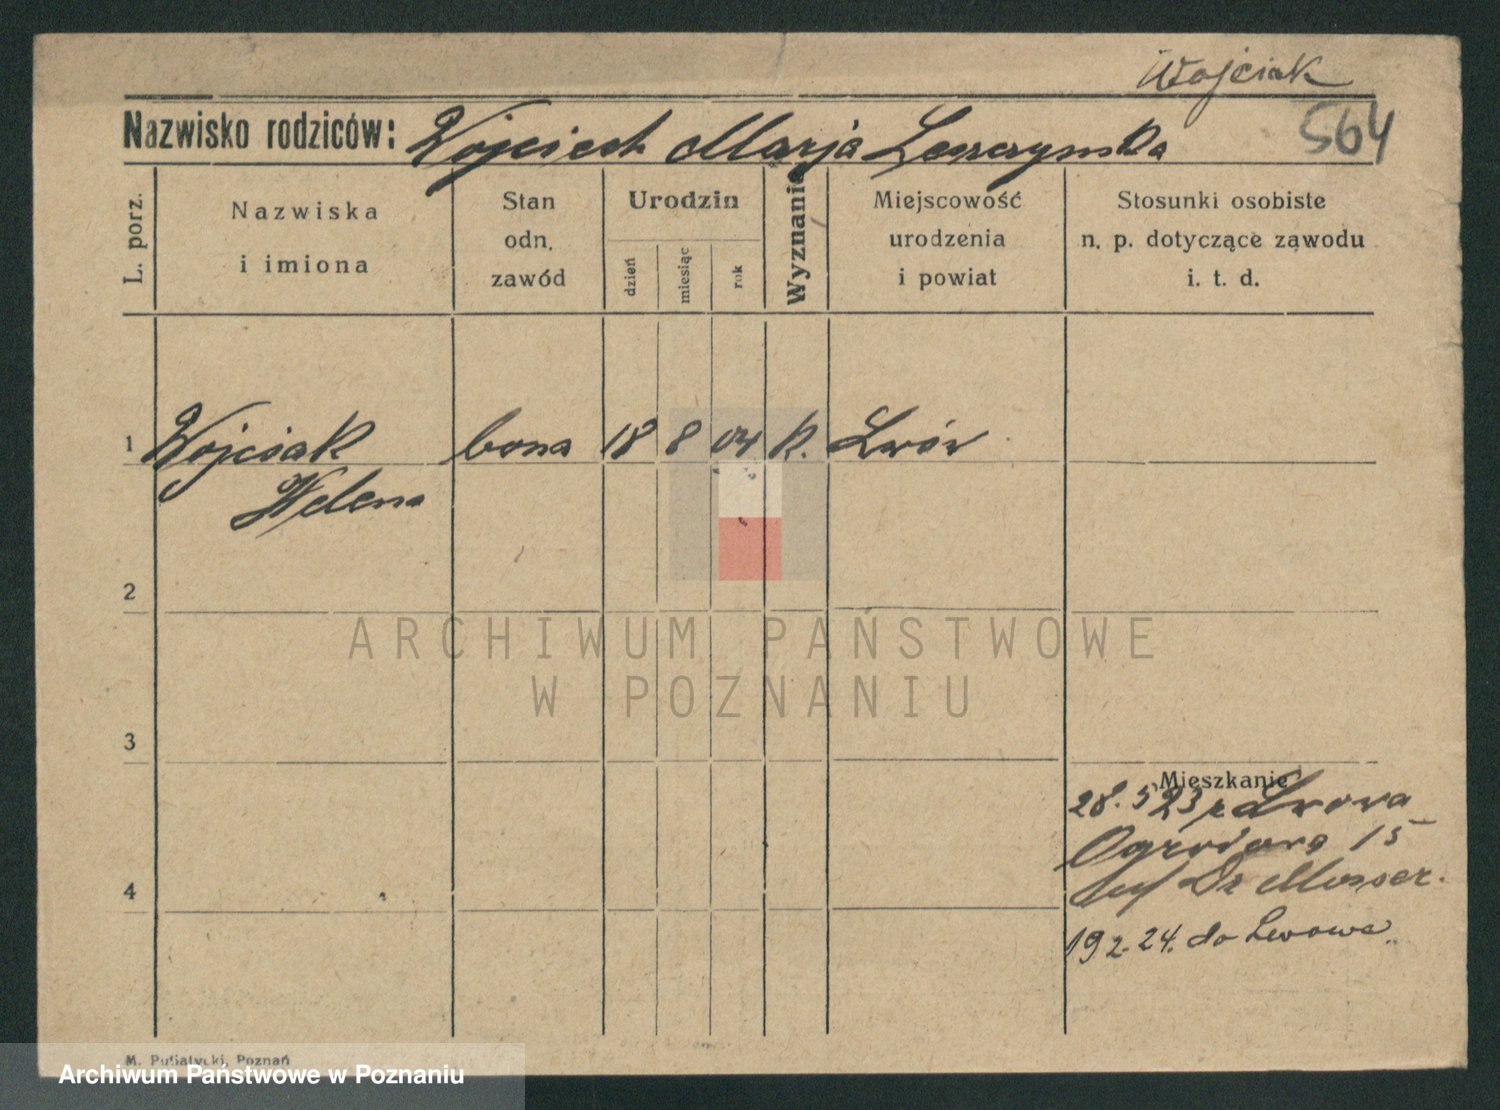 Wojciak
564
Nazwisko rodziców: Wojciech Marja Leszczynska
L. porz.
Nazwiska
i imiona
Stan
odn.
zawód
Urodzin
dzień
miesiąc
rok
Wyznanie
Miejscowość
urodzenia
i powiat
Stosunki osobiste
n. p. dotyczące zawodu
i. t. d.
1 Wojciak bona 18 8 04 k. Lwów
Helena
2
ARCHIWUM PAŃSTWOWE
W POZNANIU
3
Mieszkanie
28. 5 23 z Lwowa
Ogrodowa 15
Dr
4
19 2. 24. do Lwowa
M. Putiatycki, Poznań
Archiwum Państwowe w Poznaniu